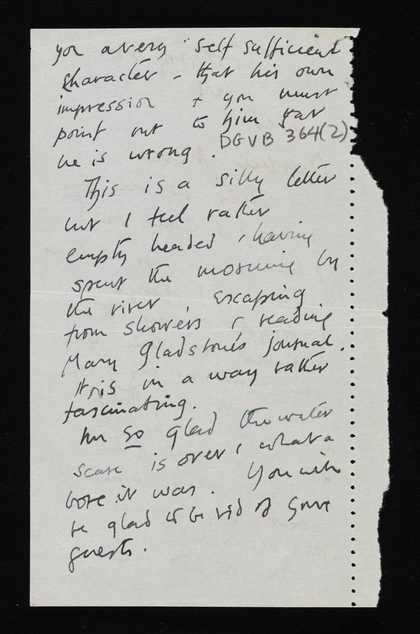 you a very self sufficient
character – that his own
impression + you must
point out to him that
he is wrong. DGVB 364(2)
This is a silly letter
but I feel rather
empty headed, having
spent the morning by
the river, escaping
from showers & reading
Mary Gladstone's journal.
It is in a way rather
fascinating.
Am so glad the water
scare is over, what a
bore it was. You will
be glad to be rid of some
guests.